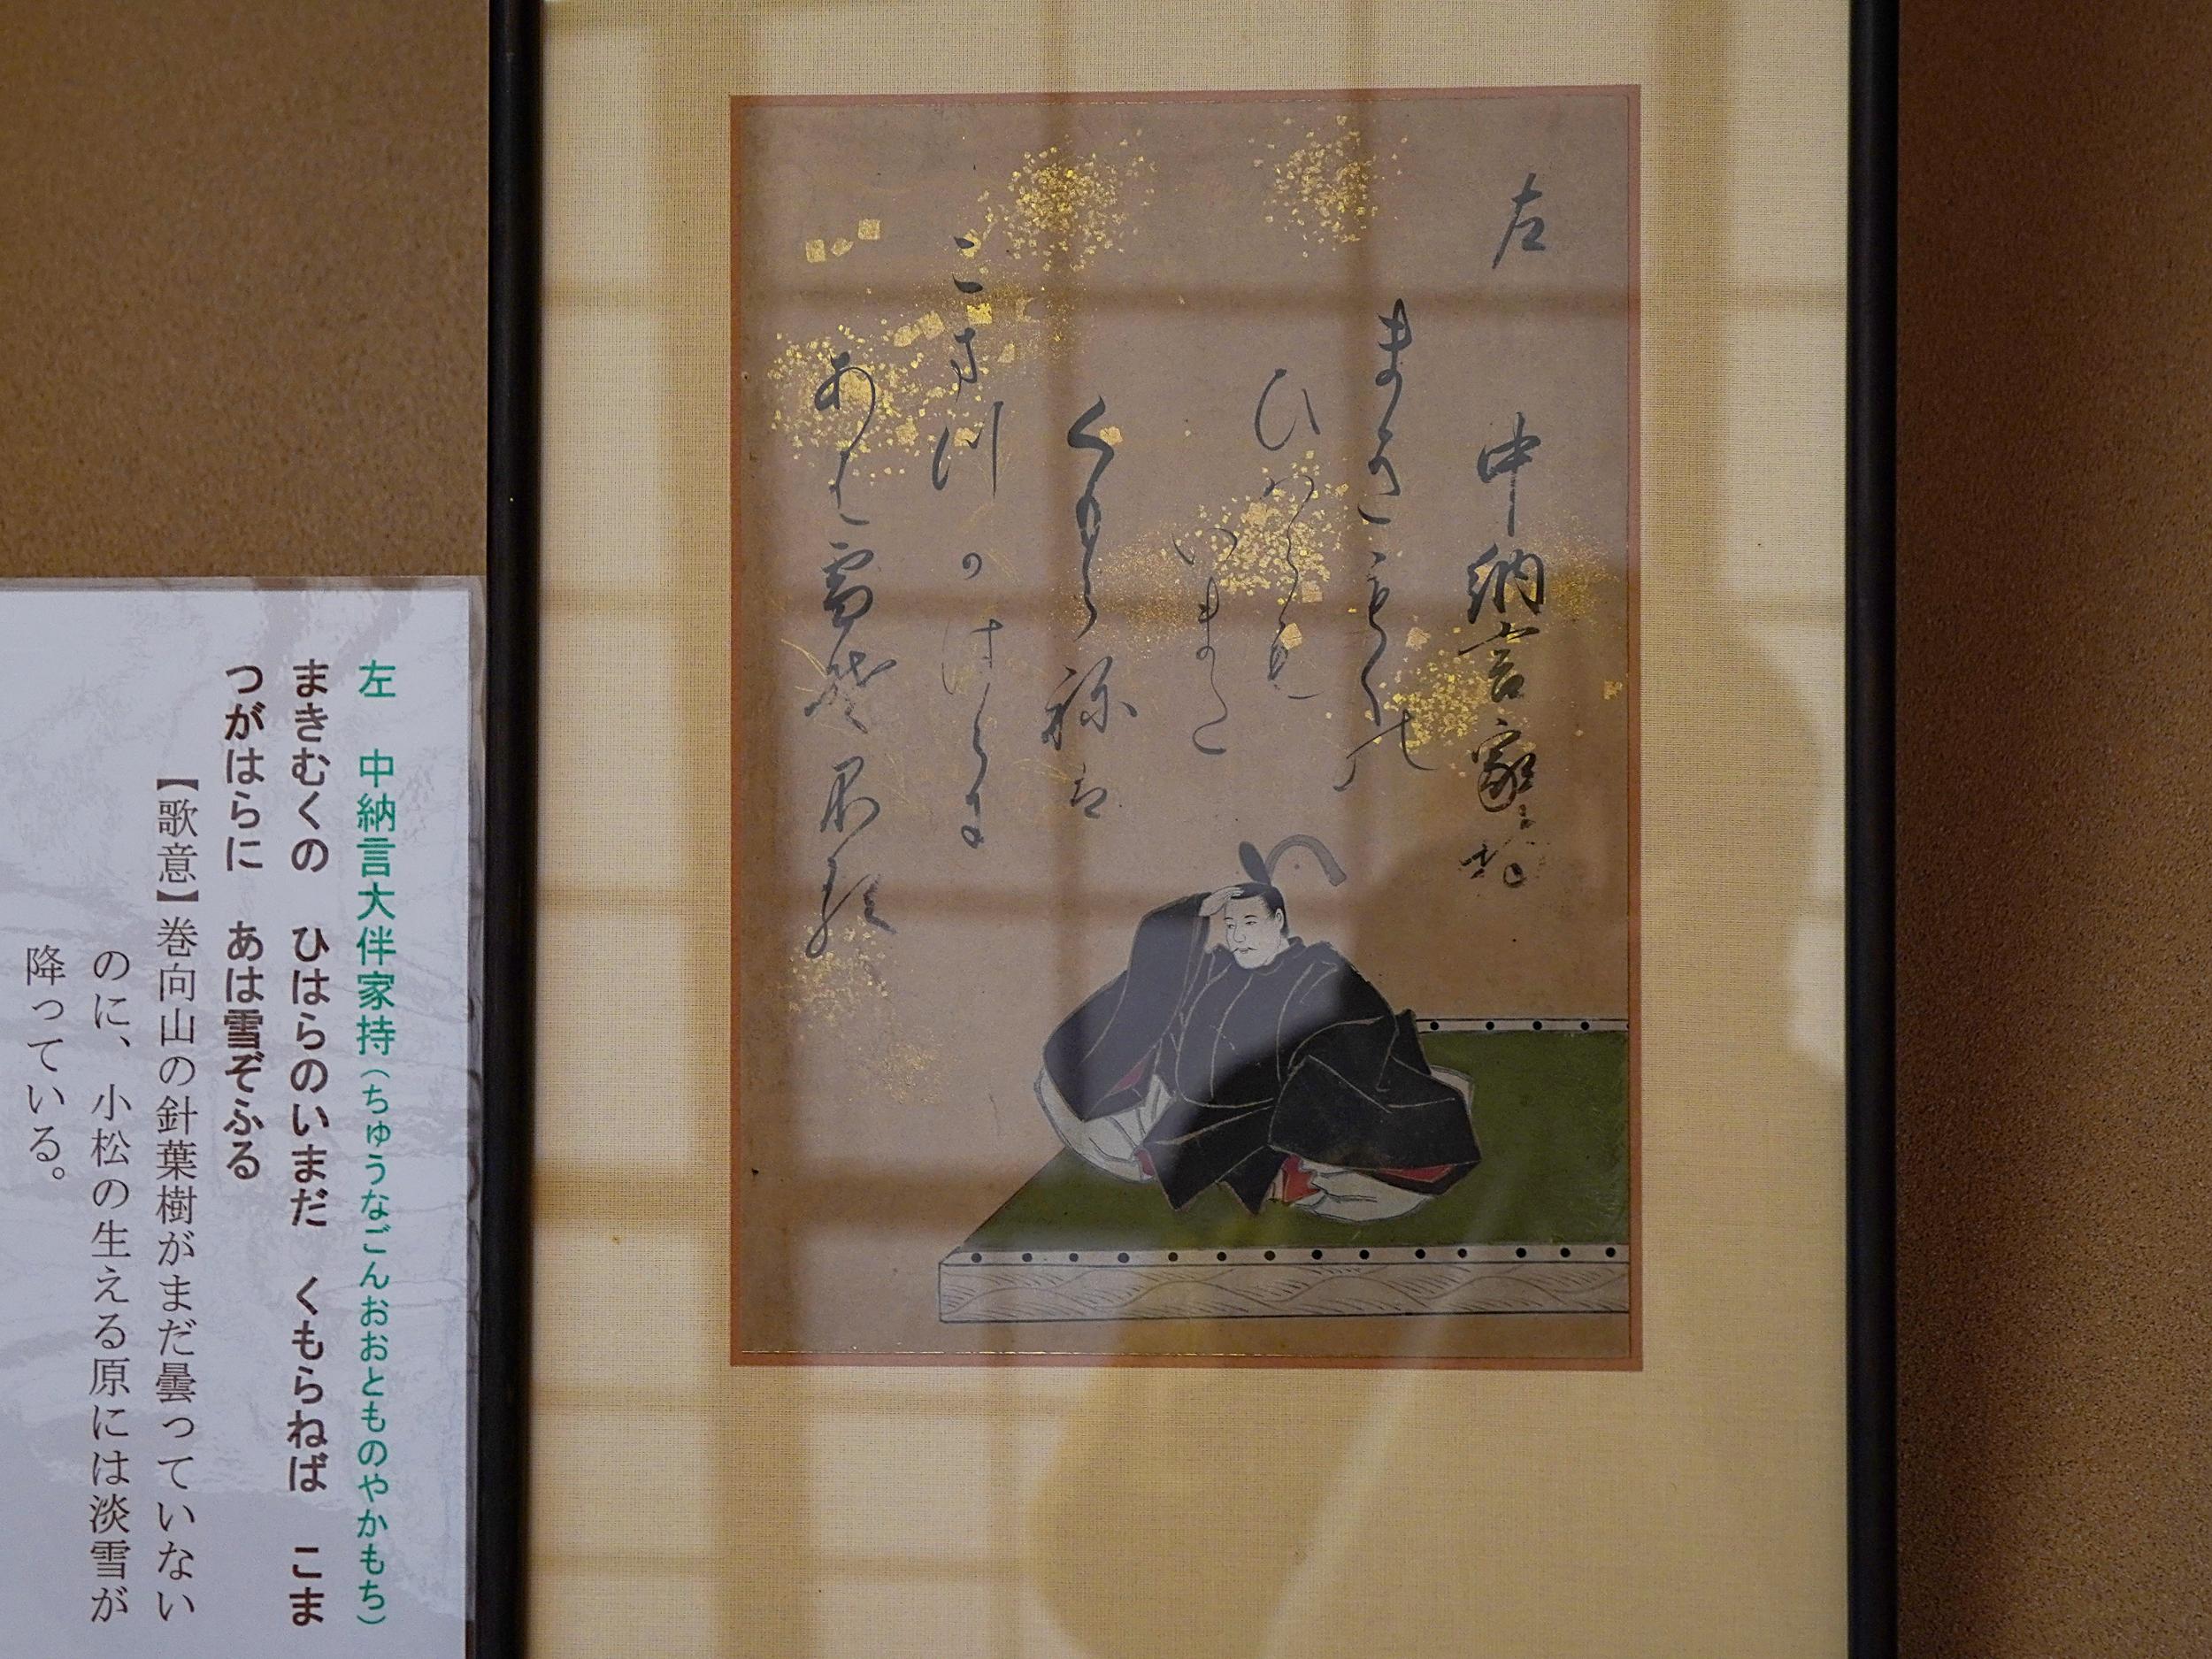 左　中納言家持
まきもくの
ひはらも
いまた
くもらねは
こまつのはらに
あは雪そふる
左　中納言大伴家持（ちゅうなごんおおとものやかもち）
まきむくの　ひはらのいまだ　くもらねば　こま
つがはらに　あは雪ぞふる
【歌意】巻向山の針葉樹がまだ曇っていない
のに、小松の生える原には淡雪が
降っている。